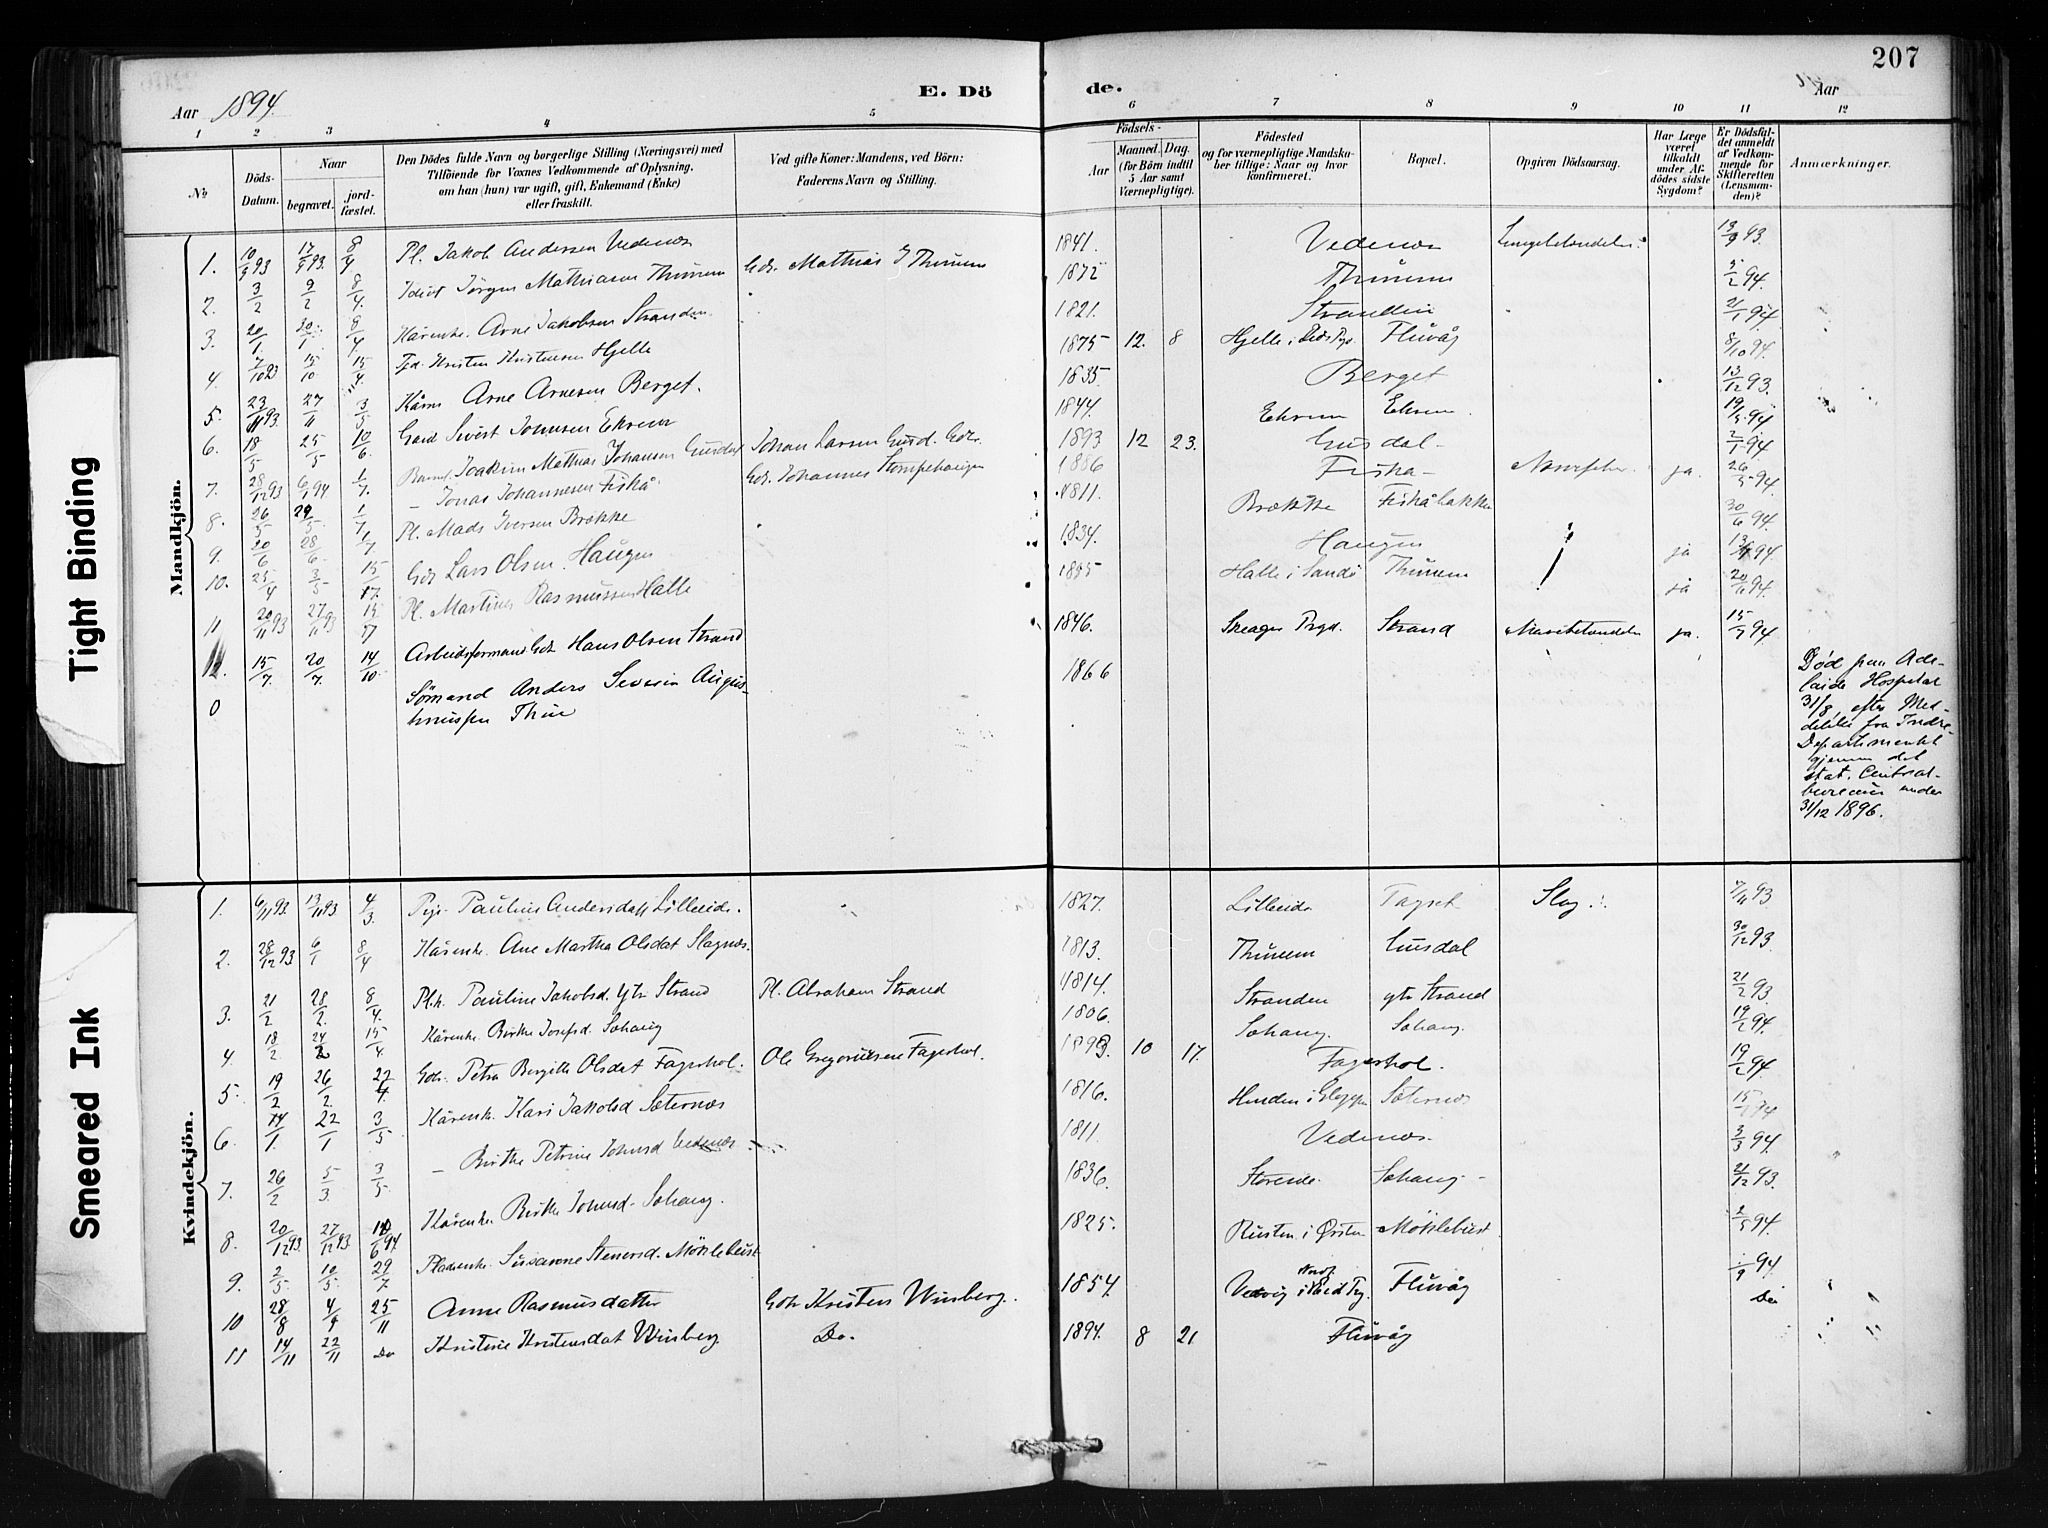 207
Aar 1894.
E. Dö
de.
Aar
1 2 3 4 5 6 7 8 9 10 11 12
No.
Döds-Datum.
Naar
begravet.
jord-fæstet.
Den Dödes fulde Navn og borgerlige Stilling (Næringsvei) med
Tilföiende for Voxnes Vedkommende af Oplysning,
om han (hun) var ugift, gift, Enkemand (Enke)
eller fraskilt.
Ved gifte Koner: Mandens, ved Börn:
Faderens Navn og Stilling.
Födsels-
Aar
Maaned. Dag.
(for Börn indtil 5 Aar samt Værnepligtige).
Födested
og for værnepligtige Mandska-
ber tillige: Naar og hvor
konfirmeret.
Bopæl.
Opgiven Dödsaarsag.
Har Læge været tilkaldt under Af-dödes sidste Sygdom?
Er Dödsfal-det anmeldt af Vedkom-mende for Skifteretten (Lensman-den)?
Anmærkninger.
Mandkjön.
1. 10/9 93 17/9 93. 8/4 Pl. Jakob Andersen Vedenes 1841. Vedenes 13/9 93.
2. 3/2 9/2 8/4. Idiot Jørgen Mathiasen Thunem Gdr. Mathias J Thunem 1872 Thunem 5/2 94.
3. 20/1. 20/1 8/4 Kårenke. Arne Jakobsen Stranden. 1821. Stranden 21/1 94.
4. 7/10 93 15/10 15/4. Kristen Kristensen Hjelle 1875 12. 8 Hjelle i Flåvåg 8/10 94.
5. 23/11 93. 27/11 3/5 Kårm Arne Arnesen Berget. 1835. Berget 13/12 93.
6. 18/5 25/5 10/6. Gard Sivert Johnsen Ekrem 1844. Ekrem Ekrem. 19/5 94
7. 28/12 93 6/1 94 1/7. Barnet Joakim Mathias Johansen Gusdal Johan Larsen Gusd. Gdr. 1893 12 23. Gusdal 2/1 94
8. 26/5 29/5. 1/7 – Jonas Johannesen Fiskå Gdr. Johannes 1886 Fiskå ja. 26/5 94.
9. 20/6 28/6. 1/7 Pl. Mads Iversen Brække 1811. Brække Fiskåbakke 30/6 94.
10. 25/4 3/5 15/7. Gdr Lars Olsen Haugen 1834. Haugen ja
11 20/11 93 27/11 93 15/7 Pl. Martinus Rasmussen Halle 1855 Halle i Sandö Thunem ja
12. 15/7. 20/7. 14/10 Arbeidsformand Gdr Hans Olsen Strand 1846. Strand ja. 15/7 94.
0 Sømand Anders Severin Augus-
tinussen Thue 1866
Död paa Ade-
laide Hospital
31/8, efter Med-
delelse fra Indre
Departementet
gjennem det
stat. Central-
bureau under
31/12 1896.
Kvindekjön.
1. 6/11 93. 13/11 93 4/3. Pige Pauline Andersdatt Lilleeide. 1827. Lilleeide Slag 7/11 93
2. 28/12 93 6/1 8/4 Kårenk. Ane Martha Olsdat Slagnes. 1813. Thunem Gusdal 30/12 93.
3. 21/2 28/2. 8/4. Pl.k. Pauline Jakobsd. Ytr Strand Pl. Abraham Strand 1814. Stranden ytr Strand 21/2 93.
4. 18/2. 24/2 15/4 Kårenke Birthe Josefsd. Sohaug 1806. Sohaug. Sohaug. 19/2 94.
5. 19/2 26/2. 22/4. Gdr. Petra Bergitte Olsdat Fagerhol. Ole Gregoriussen Fagerhol. 1893 10 17. Fagerhol. 19/2 94.
6. 14/1. 22/1 3/5 Kårenk. Kari Jakobsd Sæternes 1816. Sæternes 15/1 94
7. 26/2 5/3. 3/5 – Birthe Petrine Johnsd Vedenes 1811. Vedenes. 3/3 94.
8. 20/12 93. 27/12 93. 10/6 94. Kårenke Birthe Johnsd. Sohaug. 1836. Storeide. Sohaug 21/12 93.
9. 2/5. 10/5. 29/7 Pladsenke. Susanne Stenersd. Möklebust 1825. Rusten i Örsten Möklebust 2/5 94.
10 28/8 4/9 25/11 Anne Rasmusdatter Gdr Kristen Winberg. 1854. Flåvåg /9 94
11 14/11 22/11 Do Kristine Kristensdat Winberg Do. 1894. 8 21 Flåvåg Do
Tight Binding
Smeared Ink